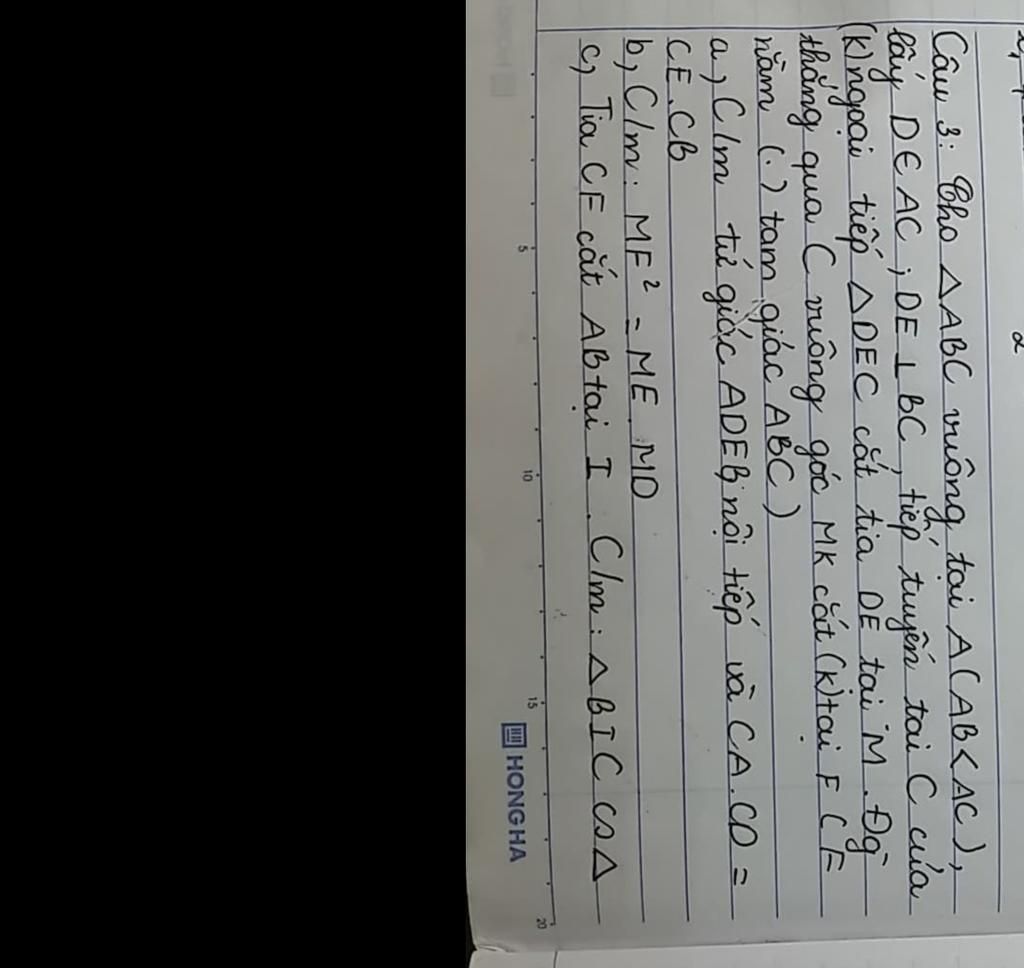 Câu 3: Cho △ABC vuông tại A (AB < AC),
lấy D ∈ AC, DE ⊥ BC, tiếp tuyến tại C của
(K) ngoại tiếp △DEC cắt tia DE tại M. Đg
thẳng qua C vuông góc MK cắt (K) tại F (F
nằm (.) tam giác ABC)
a, C/m tứ giác ADEB nội tiếp và CA.CD =
CE.CB
b, C/m: MF² = ME.MD
c, Tia CF cắt AB tại I. C/m: △BIC ∽ △
5 10 15 20
HONG HA